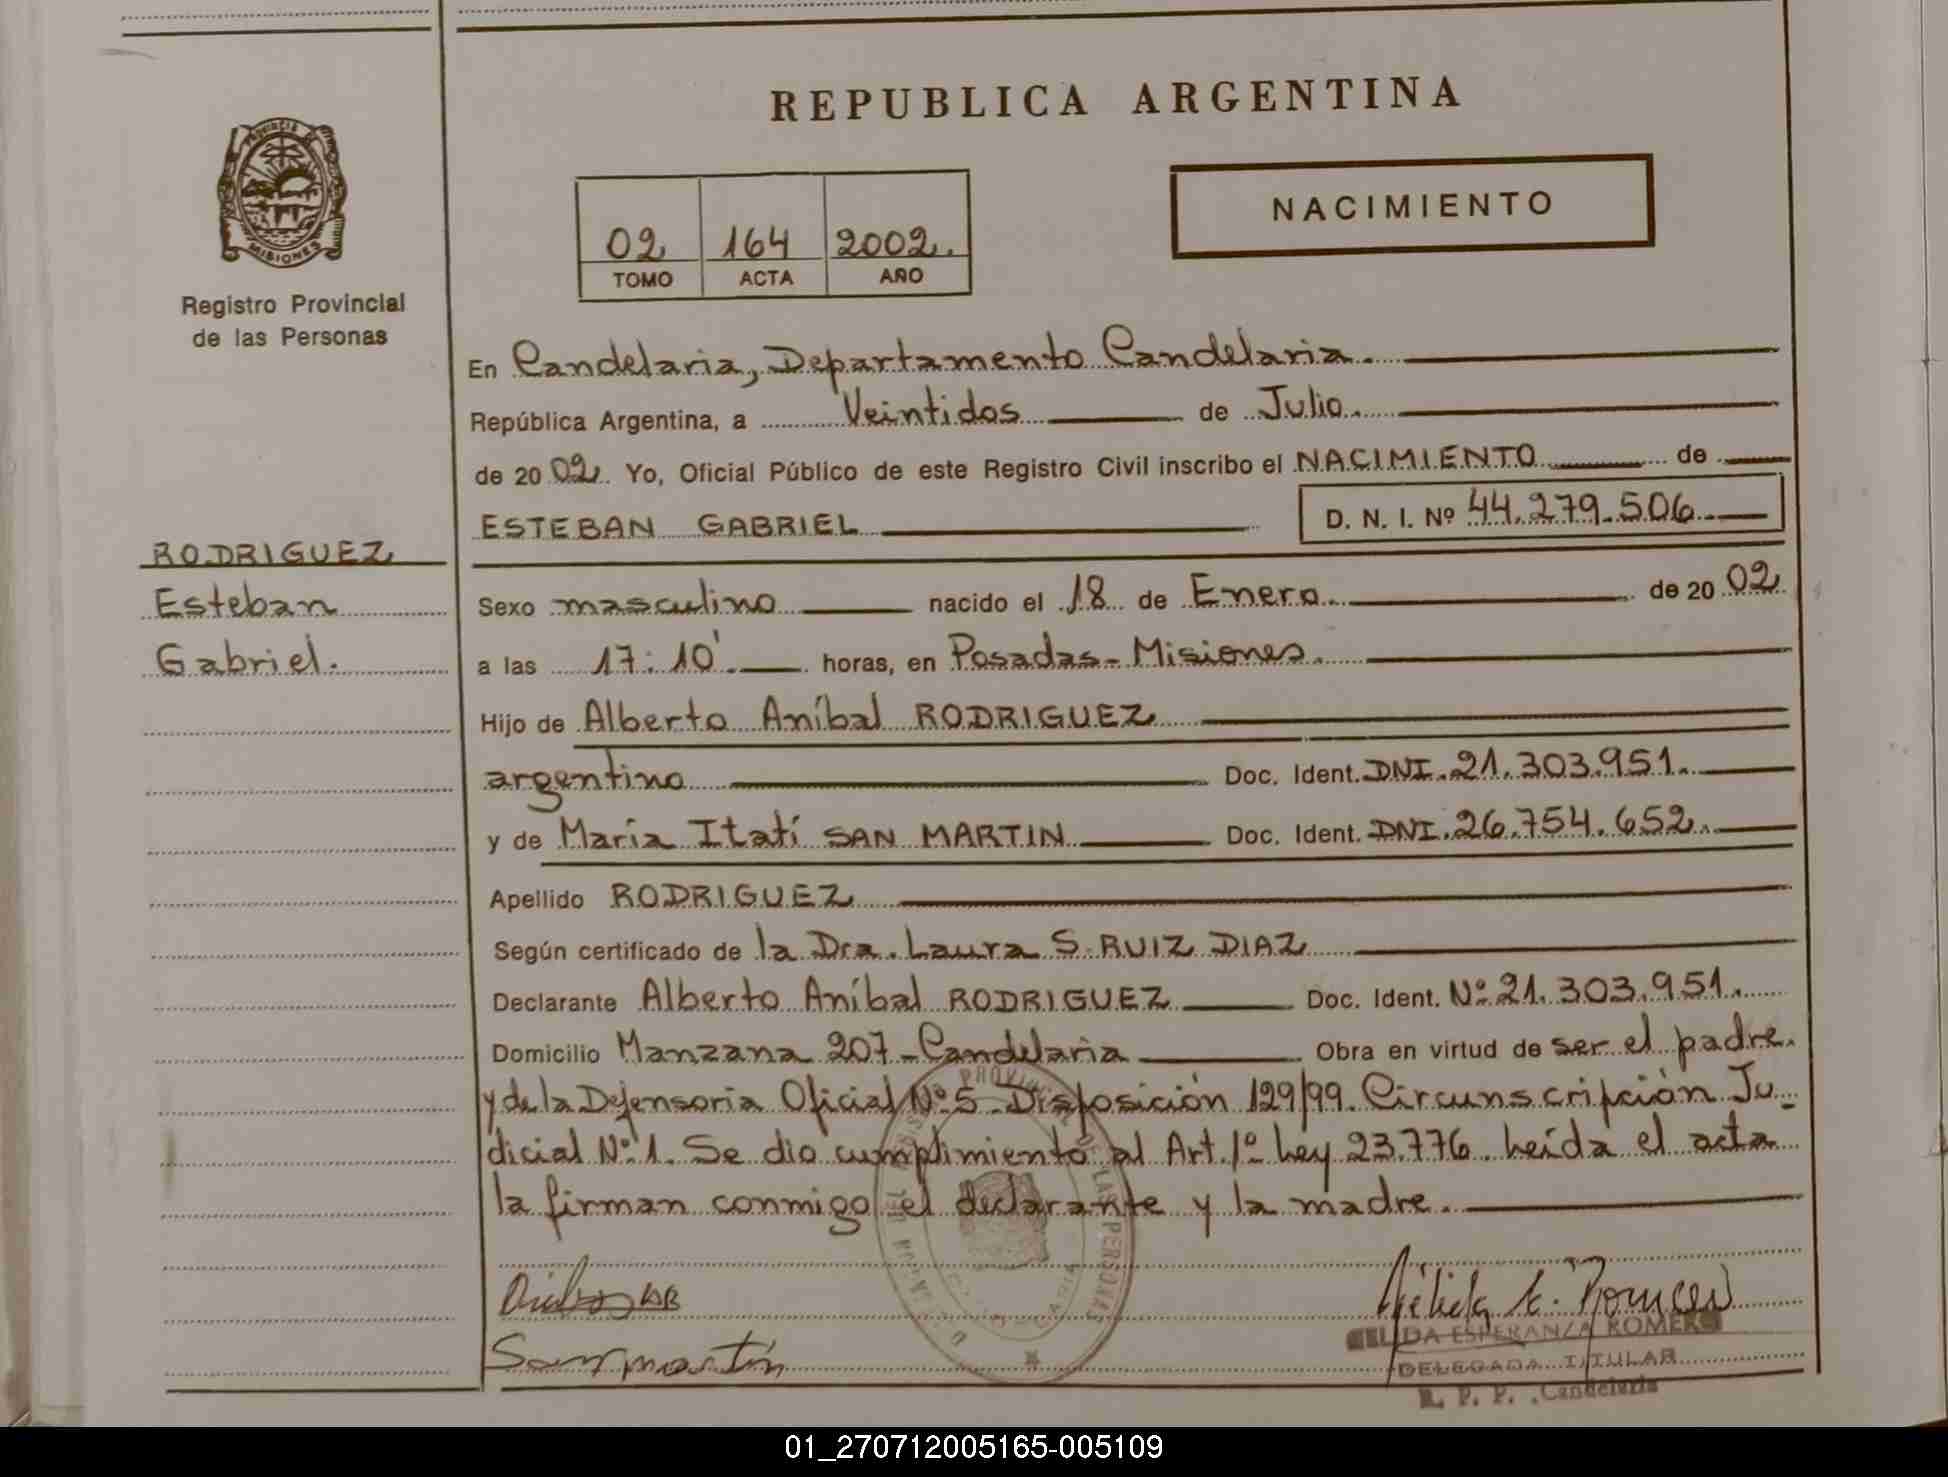 REPUBLICA ARGENTINA
PROVINCIA DE
MISIONES
Registro Provincial
de las Personas
NACIMIENTO
02 164 2002.
TOMO ACTA AÑO
En Candelaria, Departamento Candelaria.
República Argentina, a Veintidos de Julio.
de 20 02. Yo, Oficial Público de este Registro Civil inscribo el NACIMIENTO de
ESTEBAN GABRIEL
D. N. I. Nº 44.279.506
RODRIGUEZ
Esteban
Gabriel.
Sexo masculino nacido el 18 de Enero. de 20 02
a las 17:10' horas, en Posadas - Misiones.
Hijo de Alberto Aníbal RODRIGUEZ
argentino Doc. Ident. DNI. 21.303.951.
y de María Itatí SAN MARTIN Doc. Ident. DNI. 26.754.652.
Apellido RODRIGUEZ
Según certificado de la Dra. Laura S. RUIZ DIAZ
Declarante Alberto Aníbal RODRIGUEZ Doc. Ident. Nº 21.303.951.
Domicilio Manzana 207 - Candelaria Obra en virtud de ser el padre.
y de la Defensoria Oficial Nº 5 Disposición 129/99. Circunscripción Ju-
dicial Nº 1. Se dio cumplimiento al Art. 1º Ley 23.776. Leída el acta
la firman conmigo el declarante y la madre.
Sanmartín
Nélida E. Romero
NELIDA ESPERANZA ROMERO
DELEGADA TITULAR
R. P. P. Candelaria
01_270712005165-005109